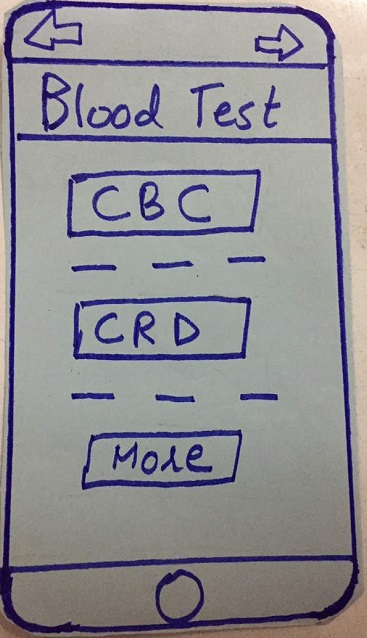 Blood Test
CBC
CRD
More